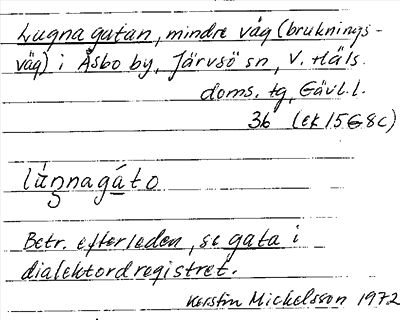 Lugna gatan, mindre väg (bruknings-
väg) i Åsbo by, Järvsö sn, V. Häls.
doms. tg, Gävl. l.
36 (ek 15G8c)
lúŋnagáto
Betr. efterleden, se gata i
dialektordregistret.
Kerstin Mickelsson 1972